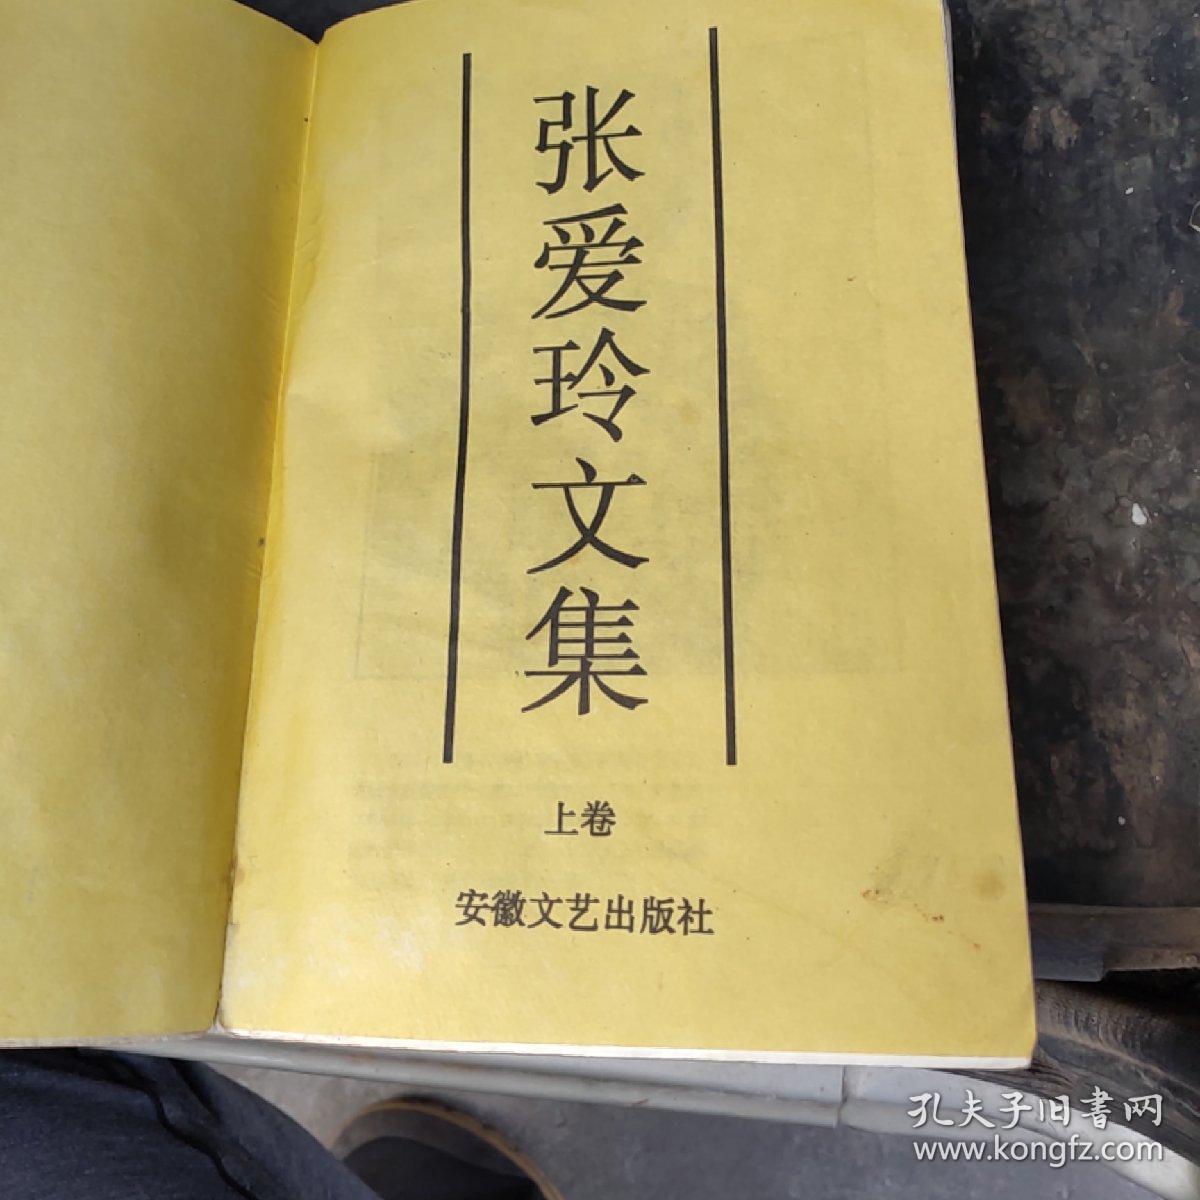 张爱玲文集
上卷
安徽文艺出版社
孔夫子旧書网
www.kongfz.com